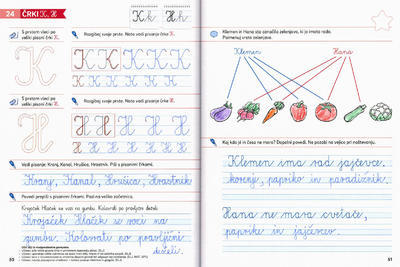 24 ČRKI K, H
K k
H h
S prstom vleci po veliki pisani črki K.
Razgibaj svoje prste. Nato vadi pisanje črke K.
K K
S prstom vleci po veliki pisani črki H.
Razgibaj svoje prste. Nato vadi pisanje črke H.
H H
Vadi pisanje: Kranj, Kanal, Hrušica, Hrastnik. Piši s pisanimi črkami.
Kranj, Kanal, Hrušica, Hrastnik
Poved prepiši s pisanimi črkami. Pazi na veliko začetnico.
Krojaček Hlaček se vozi na gumbu. Kolovrati po pravljični deželi.
Krojaček Hlaček se vozi na
gumbu. Kolovrati po pravljični
deželi.
50
Klemen in Hana sta označila zelenjavo, ki jo imata rada.
Poimenuj vrsto zelenjave.
Klemen Hana
Kaj kdo je in česa ne mara? Dopolni povedi. Ne pozabi na vejico pri naštevanju.
Klemen ima rad jajčevce,
korenje, papriko in paradižnik.
Hana ne mara cvetače,
paprike in jajčevcev.
51